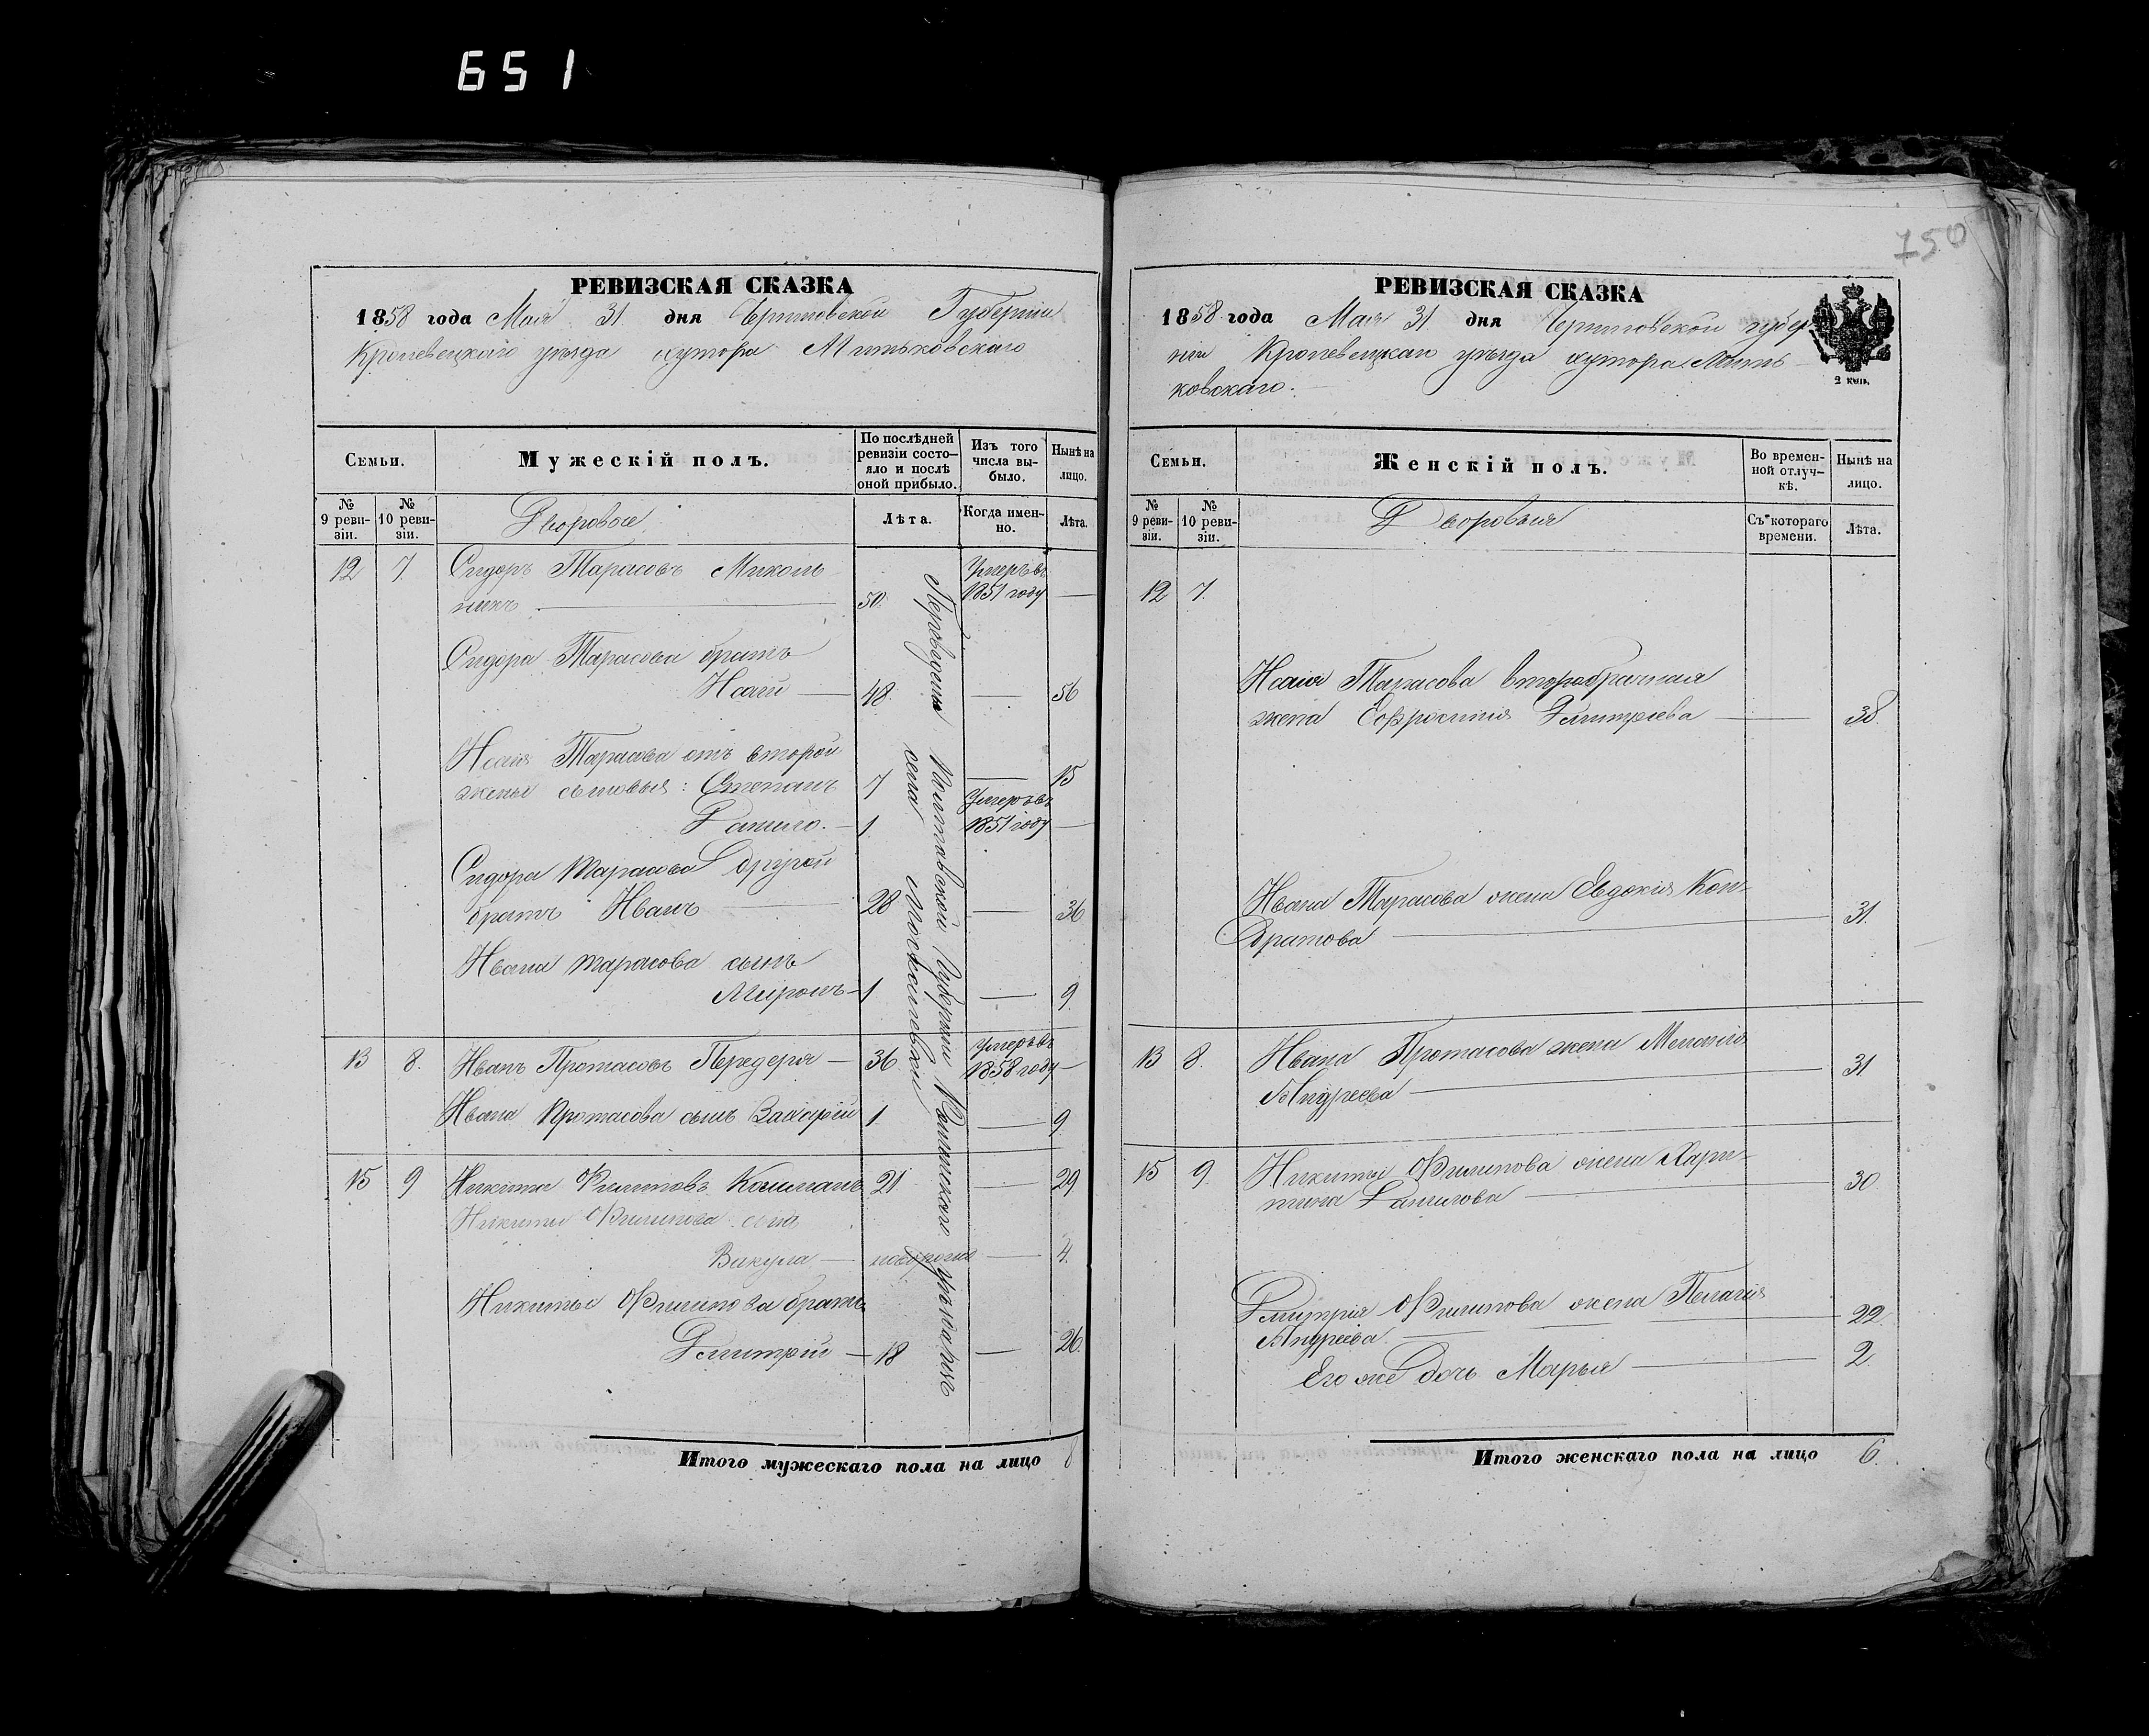 651
750
РЕВИЗСКАЯ СКАЗКА
1858 года Мая 31 дня Черниговской Губерніи
Кролевецкаго уѣзда хутора Митьковскаго
Семьи.
Мужескій полъ.
По послѣдней ревизіи состояло и послѣ оной прибыло.
Изъ того числа выбыло.
Нынѣ на лицо.
№ 9 ревизіи.
№ 10 ревизіи.
Дворовые
Лѣта.
Когда именно.
Лѣта.
12 7. Сидоръ Тарасовъ
50. Умеръ въ 1851 году —
Сидора Тарасова братъ
Исаій — 48. — 56
Исаія Тарасова отъ второй
жены сыновья: Степанъ 7 — 15
Данило. — 1. Умеръ въ 1851 году —
Сидора Тарасова другой
братъ Иванъ 28 — 36
Ивана Тарасова сынъ
Миронъ — 1 — 9
13 8. Иванъ Протасовъ Передерія — 36 Умеръ въ 1858 году —
Ивана Протасова сынъ Захарій 1 — 9
15 9 Никита Филиповъ 21 — 29
Никиты Филипова сынъ
Вакула — — 4.
Никиты Филипова братъ
Дмитрій — 18 — 26.
Переведены Полтавской Губерніи уѣзда изъ
села
Итого мужескаго пола на лицо 8
РЕВИЗСКАЯ СКАЗКА
1858 года Мая 31 дня Черниговской губер
ніи Кролевецкаго уѣзда хутора Мить
ковскаго.
2 коп.
Семьи.
Женскій полъ.
Во временной отлучкѣ.
Нынѣ на лицо.
№ 9 ревизіи.
№ 10 ревизіи.
Дворовыя
Съ котораго времени.
Лѣта.
12 7.
Исаія Тарасова второбрачная
жена Ефросинія Дмитріева — 38.
Ивана Тарасова жена Евдокія Кон-
дратова — 31.
13 8. Ивана Протасова жена Меланія
Андреева — 31
15 9. Никиты Филипова жена Хари-
тина Данилова — 30
Дмитрія Филипова жена Пелагія
Андреева — 22.
Его же дочь Марья — 2
Итого женскаго пола на лицо 6.